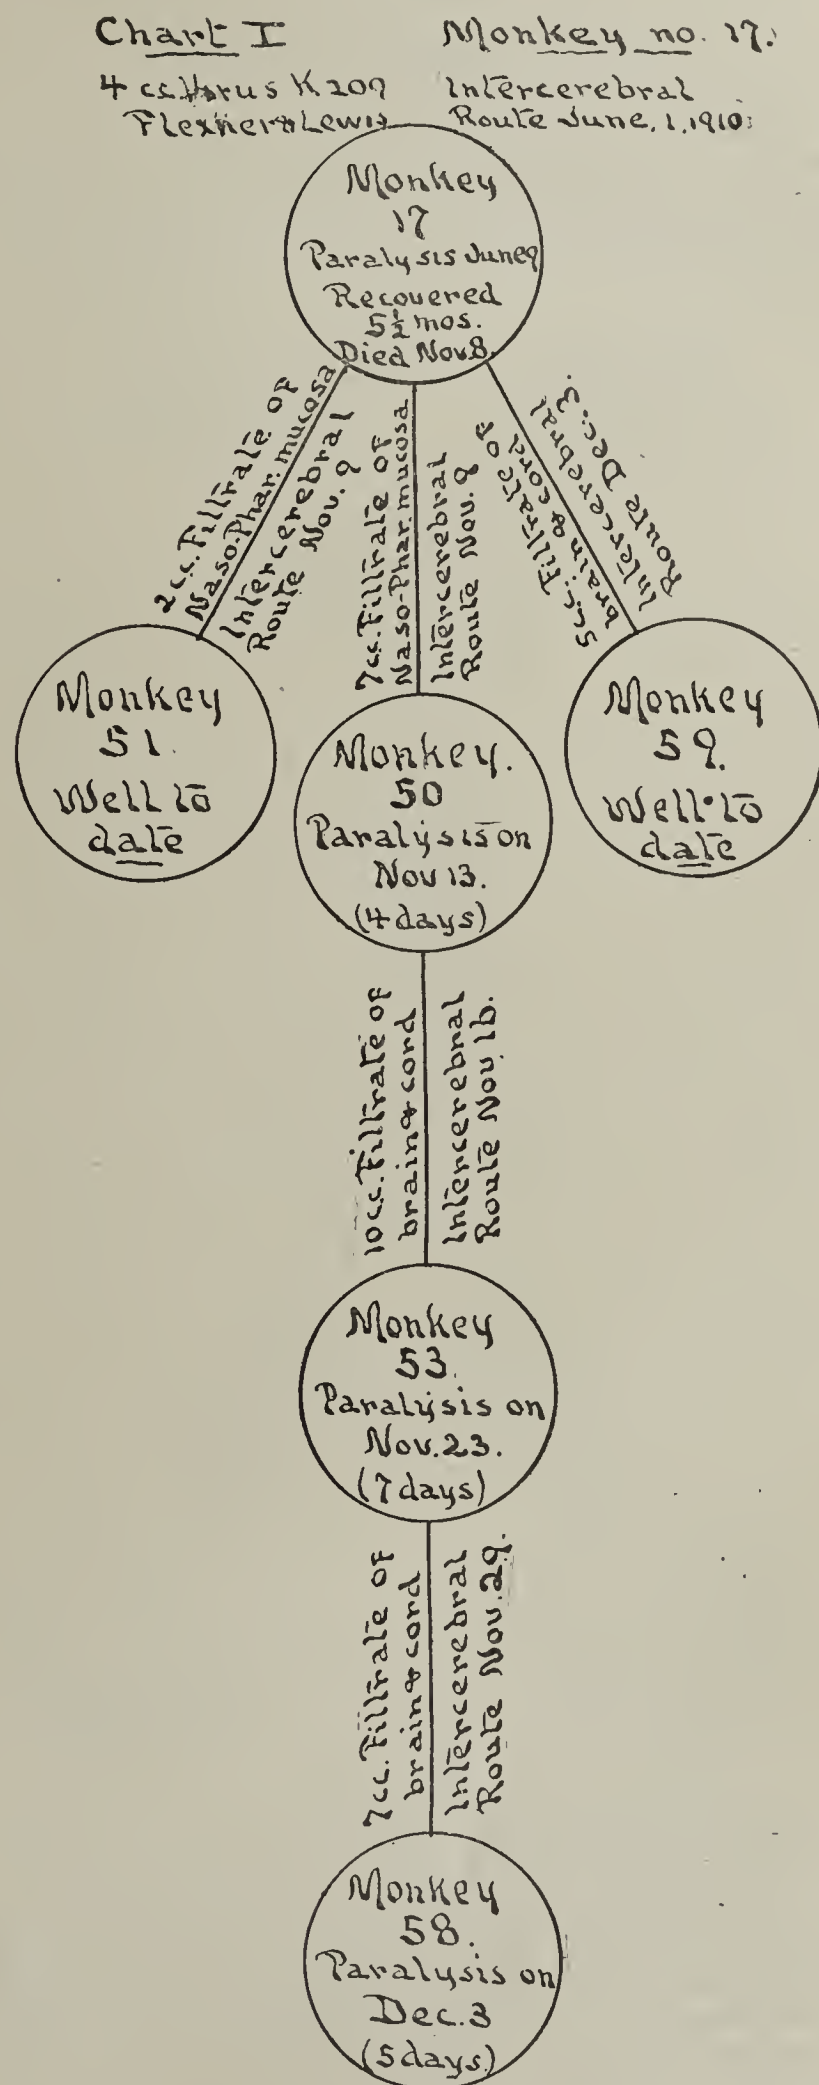 Chart I
Monkey no. 17.
4 cc. Virus K 209
Flexner & Lewis
Intercerebral
Route June, 1, 1910:
Monkey
17
Paralysis June 9
Recovered
5½ mos.
Died Nov. 8.
2 c.c. Filtrate of
Naso-Phar. mucosa
Intercerebral
Route Nov. 9
7 cc. Filtrate of
Naso-Phar. mucosa
Intercerebral
Route Nov. 9
5 c.c. Filtrate of
brain & cord
Intercerebral
Route Dec. 3.
Monkey
51.
Well to
date
Monkey.
50
Paralysis on
Nov 13.
(4 days)
Monkey
59.
Well to
date
10 c.c. Filtrate of
brain & cord
Intercerebral
Route Nov. 16.
Monkey
53.
Paralysis on
Nov. 23.
(7 days)
7 cc. Filtrate of
brain & cord
Intercerebral
Route Nov. 29.
Monkey
58.
Paralysis on
Dec. 3
(5 days)